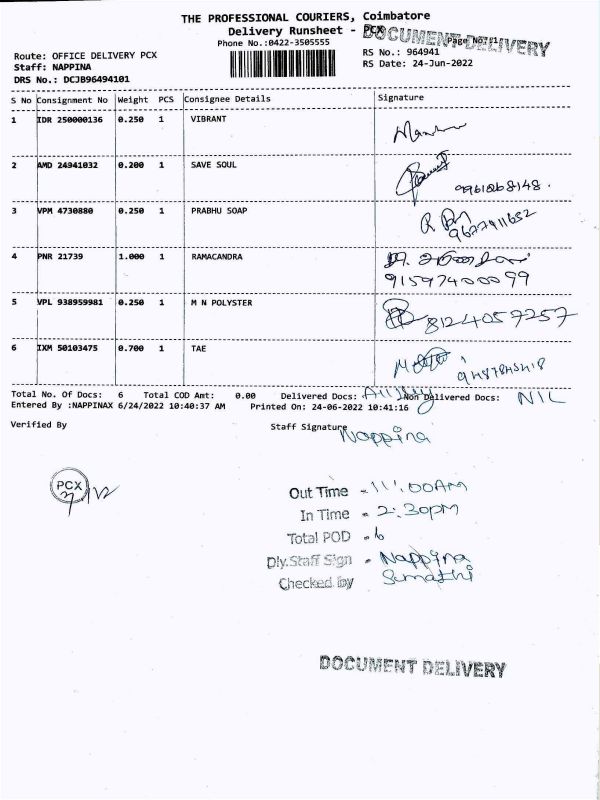 THE PROFESSIONAL COURIERS, Coimbatore
Delivery Runsheet - PCX
DOCUMENT DELIVERY
Phone No.:0422-3505555
Page No:1
Route: OFFICE DELIVERY PCX
RS No.: 964941
Staff: NAPPINA
RS Date: 24-Jun-2022
DRS No.: DCJB96494101
S No Consignment No Weight PCS Consignee Details Signature
1 IDR 250000136 0.250 1 VIBRANT
2 AMD 24941032 0.200 1 SAVE SOUL
9961268148.
3 VPM 4730880 0.250 1 PRABHU SOAP
9677411652
4 PNR 21739 1.000 1 RAMACANDRA
91597400099
5 VPL 938959981 0.250 1 M N POLYSTER
8124057257
6 IXM 50103475 0.700 1 TAE
Total No. Of Docs: 6 Total COD Amt: 0.00 Delivered Docs: Non Delivered Docs: NIL
Entered By :NAPPINAX 6/24/2022 10:40:37 AM Printed On: 24-06-2022 10:41:16
Verified By Staff Signature
Nappina
PCX
Out Time - 11:00AM
In Time - 2:30pm
Total POD - 6
Dly.Staff Sign - Nappina
Checked by Sumathi
DOCUMENT DELIVERY